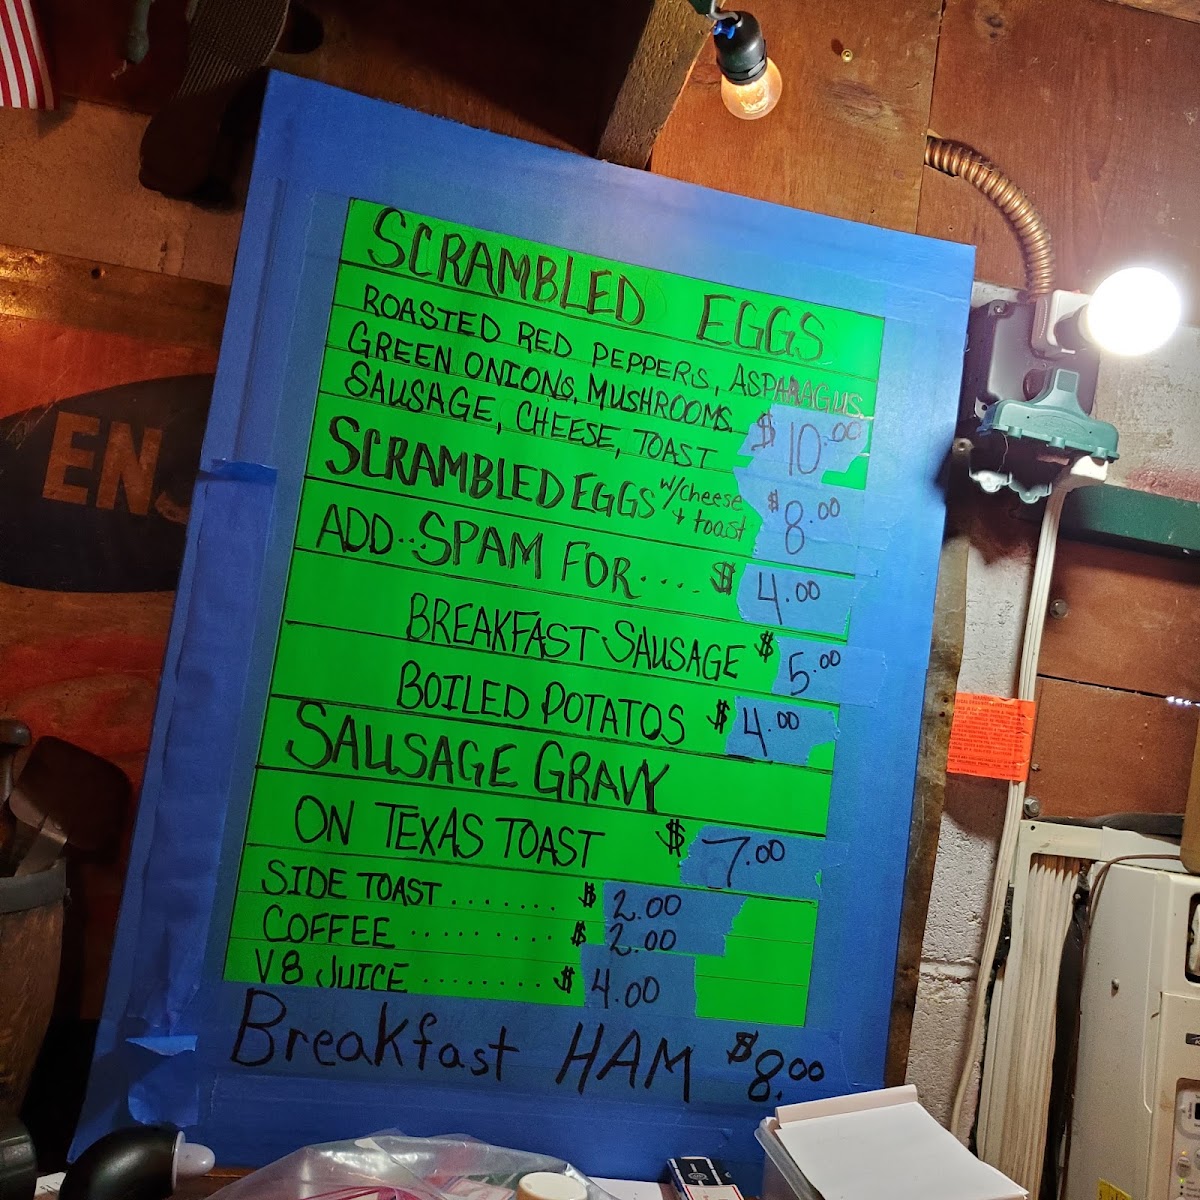 SCRAMBLED EGGS
ROASTED RED PEPPERS, ASPARAGUS,
GREEN ONIONS, MUSHROOMS,
SAUSAGE, CHEESE, TOAST $10.00
SCRAMBLED EGGS w/cheese + toast $8.00
ADD..SPAM FOR.... $4.00
BREAKFAST SAUSAGE $5.00
BOILED POTATOS $4.00
SAUSAGE GRAVY
ON TEXAS TOAST $7.00
SIDE TOAST ....... $2.00
COFFEE .......... $2.00
V8 JUICE ........ $4.00
Breakfast HAM $8.00
EN